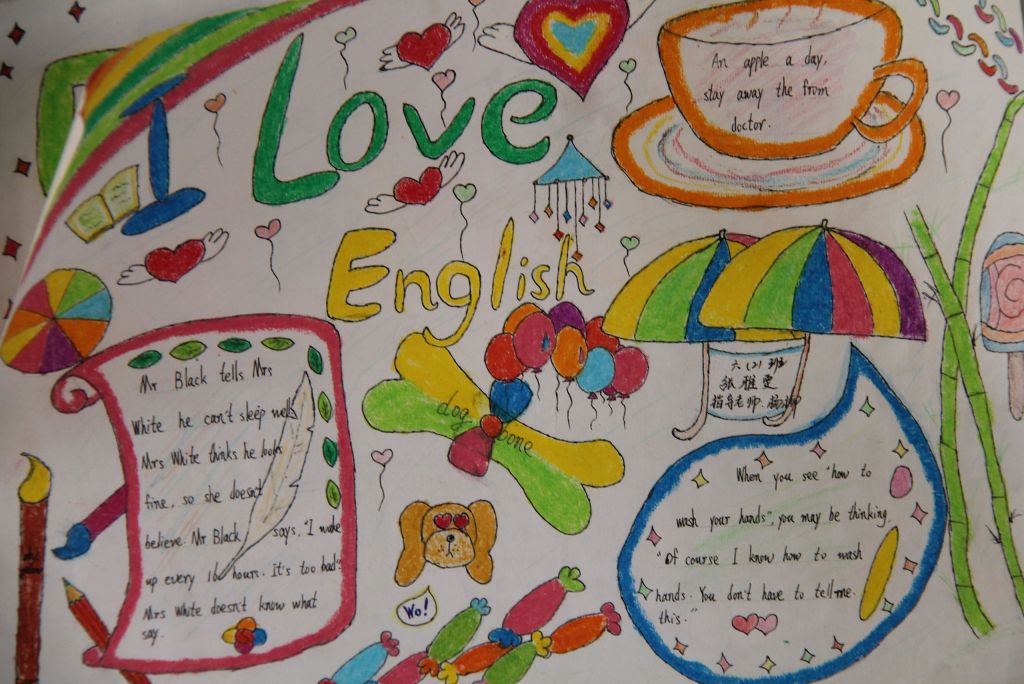 I Love
English
An apple a day,
stay away the from
doctor.
Mr Black tells Mrs
White he can't sleep well
Mrs White thinks he looks
fine, so she doesn't
believe. Mr Black says, "I wake
up every 16 hours. It's too bad".
Mrs White doesn't know what
say.
dog bone
Wo!
六(2)班
张雅雯
指导老师:
When you see "how to
wash your hands", you may be thinking,
"Of course I know how to wash
hands. You don't have to tell me.
this."